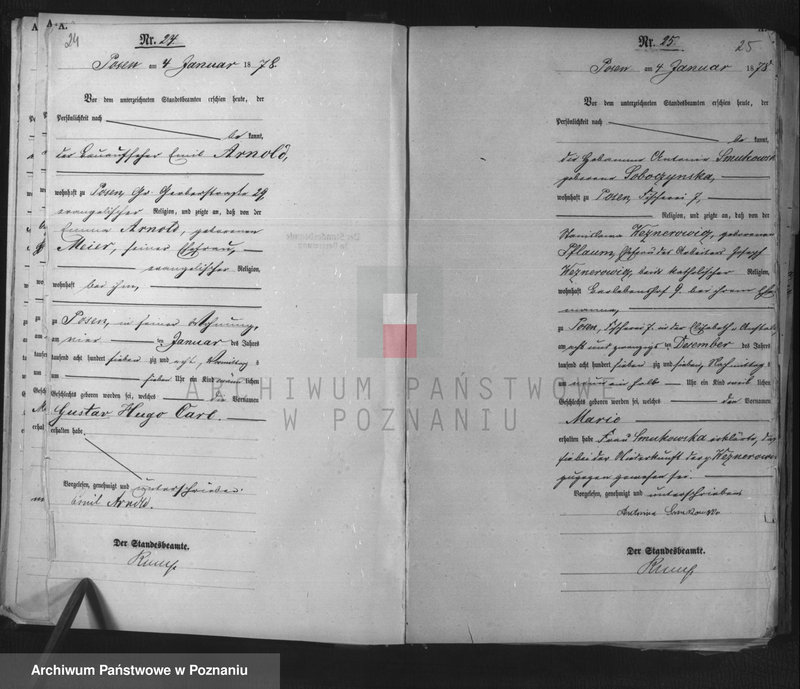 A.
24
Nr. 24.
Posen am 4 Januar 1878.
Vor dem unterzeichneten Standesbeamten erschien heute, der
Persönlichkeit nach
be kannt,
der Emil Arnold,
wohnhaft zu Posen, Gr. Gerberstraße 29,
evangelischer Religion, und zeigte an, daß von der
Emma Arnold, geborenen
Meier, seiner Ehefrau,
evangelischer Religion,
wohnhaft bei ihm,
zu Posen, in seiner Wohnung,
am vier ten Januar des Jahres
tausend acht hundert sieben zig und acht, Vormittags
um sieben Uhr ein Kind männ lichen
Geschlechts geboren worden sei, welches die Vornamen
Gustav Hugo Carl
erhalten habe.
Vorgelesen, genehmigt und unterschrieben
Emil Arnold.
Der Standesbeamte.
Nr. 25.
25
Posen am 4 Januar 1878
Vor dem unterzeichneten Standesbeamten erschien heute, der
Persönlichkeit nach
be kannt,
die Hebamme Antonie Smukowska
geborene Soboczynska,
wohnhaft zu Posen, Fischerei 7,
Religion, und zeigte an, daß von der
Stanislawa Weznerowicz, geborenen
Pflaum, Ehefrau des Arbeiters Joseph
Weznerowicz, beide katholischer Religion,
wohnhaft bei ihrem Ehe
manne,
zu Posen, Fischerei 7. in der
am acht und zwanzigsten Dezember des Jahres
tausend acht hundert sieben zig und sieben, Nachmittags
um ein halb Uhr ein Kind weib lichen
Geschlechts geboren worden sei, welches den Vornamen
Marie
erhalten habe. Frau Smukowska erklärte, daß
sie bei der Niederkunft der p. Weznerowicz
zugegen gewesen sei.
Vorgelesen, genehmigt und unterschrieben
Antonie Smukowska
Der Standesbeamte.
ARCHIWUM PAŃSTWOWE
W POZNANIU
Archiwum Państwowe w Poznaniu